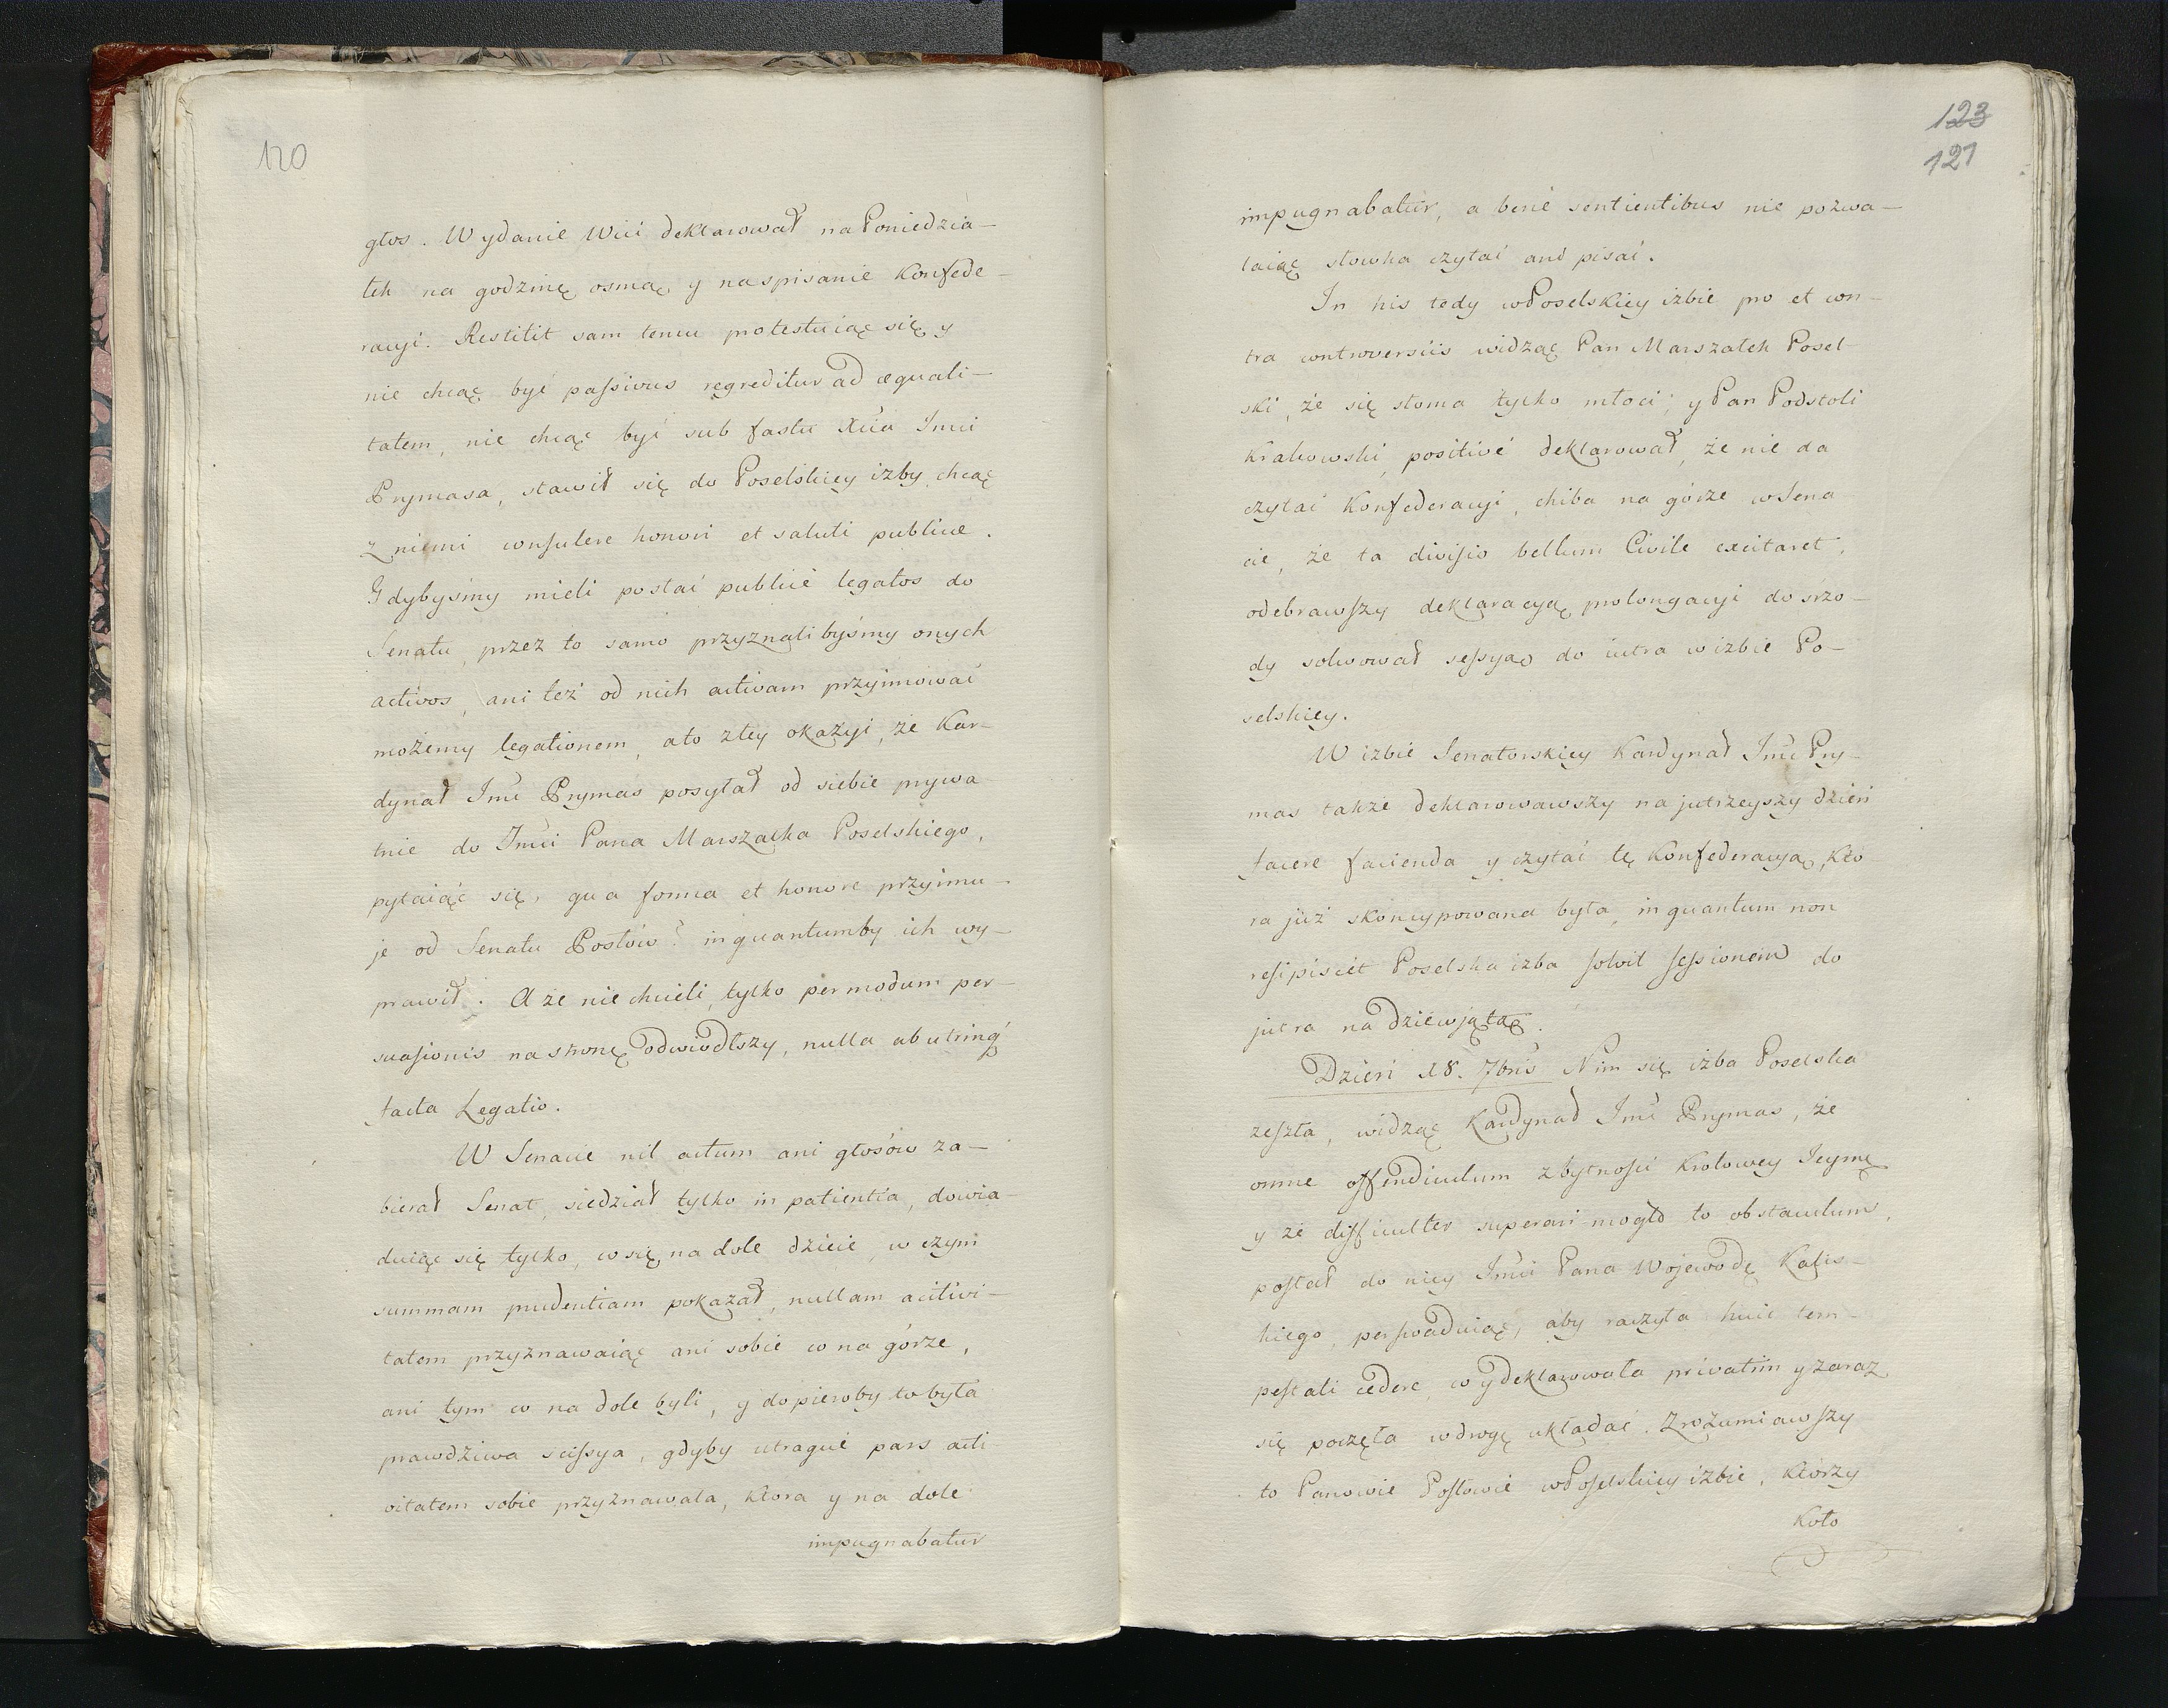 120
głos. Wydanie Wici deklarował na Poniedzia–
łek na godzinę osmą y na spisanie Konfede–
racyi. Restitit sam temu protestuiąc się y
nie chcąc być passivus regreditur ad æquali–
tatem, nie chcąc być sub fastu Xcia Imci
Prymasa, stawił się do Poselskiey izby chcąc
z niemi consulere honori et saluti publicæ.
Gdybyśmy mieli posłać publicé legatos do
Senatu, przez to samo przyznalibyśmy onych
activos, ani też od nich activam przyimować
możemy legationem, a to z tey okazyi, że Kar–
dynał Imć Prymas posyłał od siebie prywa
tnie do Imci Pana Marszałka Poselskiego,
pytaiąc się, qua forma et honore przyimu–
je od Senatu Posłów? in quantumby ich wy–
prawił. A że nie chcieli, tylko per modum per–
suasionis na stronę odwiodłszy, nulla ab utrinq́
facta Legatio.
W Senacie nil actum ani głosów za–
bierał Senat, siedział tylko in patientia, dowia–
duiąc się tylko, co się na dole dzieie, w czym
summam prudentiam pokazał, nullam activi–
tatem przyznawaiąc ani sobie co na górze,
ani tym co na dole byli, y dopieroby to była
prawdziwa scissya, gdyby utraque pars acti
vitatem sobie przyznawała, ktora y na dole
impugnabatur
123
121
impugnabatur, a bené sentientibus nie pozwa–
laiąc słowka czytać ani pisać.
In his tedy w Poselskiey izbie pro et con–
tra controversiis widząc Pan Marszałek Posel–
ski, że się słoma tylko młoci; y Pan Podstoli
Krakowski, positivé deklarował, że nie da
czytać Konfederacyi, chiba na górze w Sena
cie, że ta divisio bellum Civile excitaret,
odebrawszy deklaracyą prolongacyi do srzo–
dy solwował sessyą do iutra w izbie Po–
selskiey.
W izbie Senatorskiey Kardynał Imć Pry–
mas także deklarowawszy na jutrzeyszy dzień
facere facienda y czytać tę Konfederacyą, kto
ra już skoncypowana była, in quantum non
resipiscet Poselska izba solvit sessionem do
jutra na dziewjątą.
Dzień 18. 7bris Nim się izba Poselska
zeszła, widząc Kardynał Imć Prymas, że
omne offendiculum z bytnosci Krolowey Jeymę
y że difficulter superari mogło to obstaculum,
posłał do niey Imci Pana Wojewodę Kalis–
kiego, perswaduiąc, aby raczyła huic tem–
pestati cedere, co y deklarowała privatim y zaraz
się poczęła w drogę układać. Zrozumiawszy
to Panowie Posłowie w Poselskiey izbie, którzy
Koło